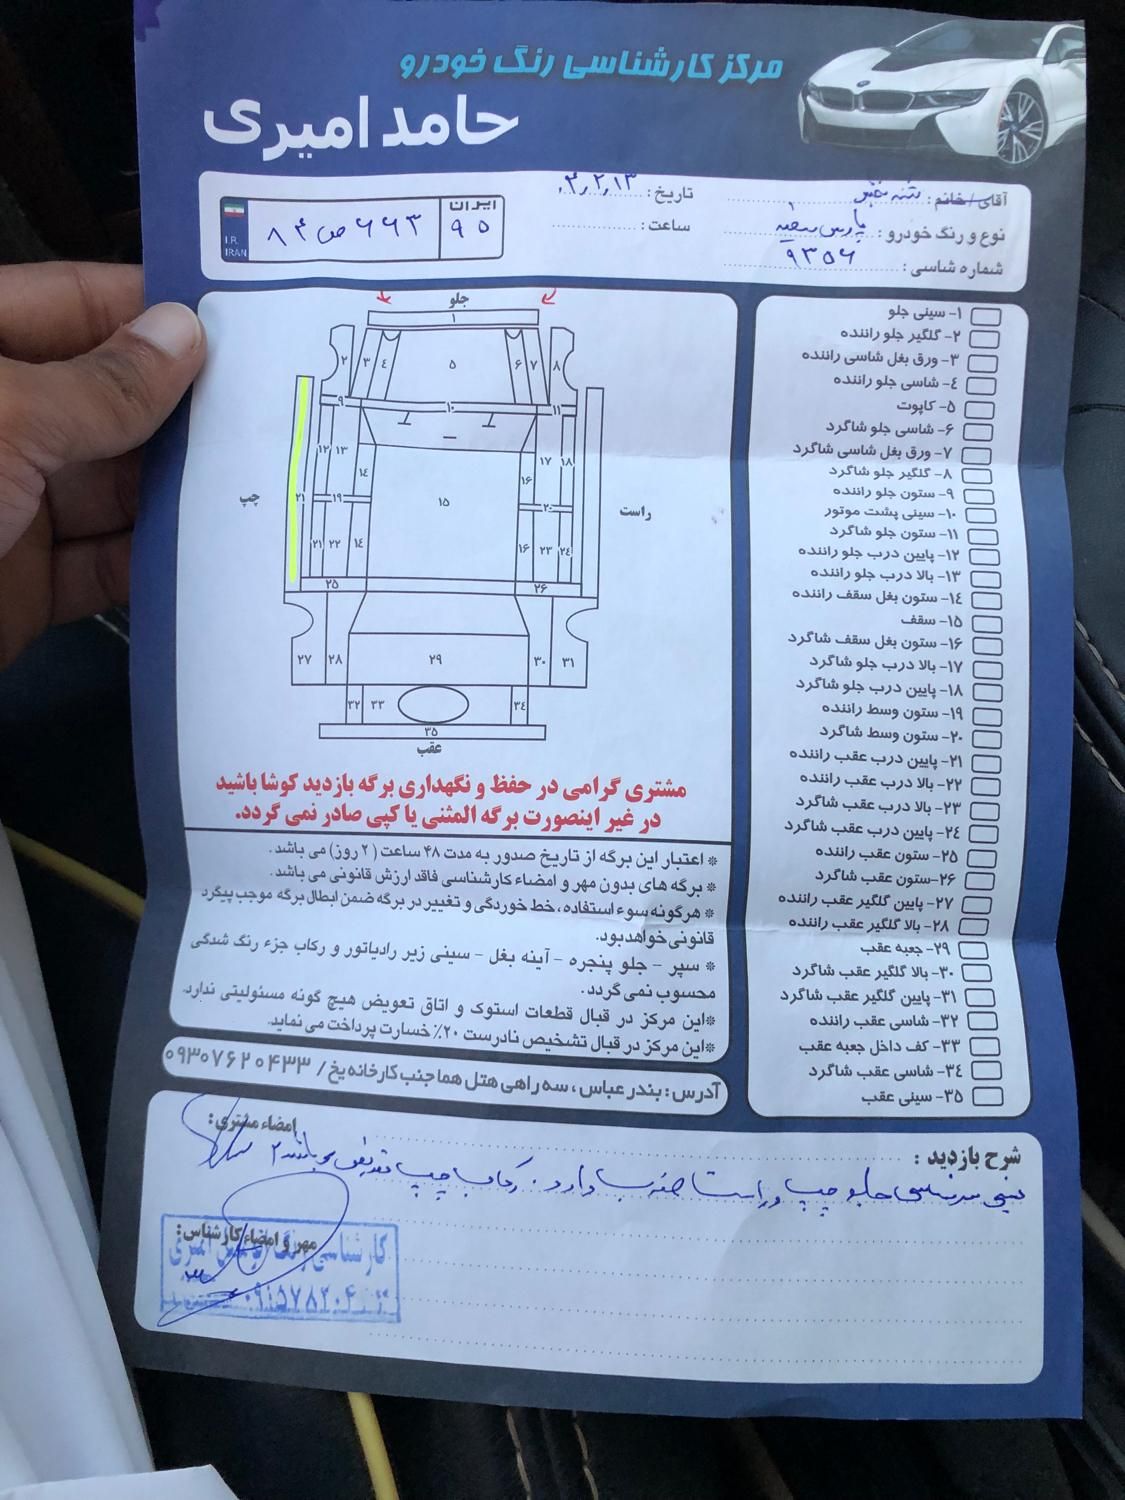 مرکز کارشناسی رنگ خودرو
حامد امیری
آقای/خانم :
تاریخ : ۰۳٫۲٫۱۳
نوع و رنگ خودرو : پارس سفید
ساعت :
شماره شاسی : ۹۳۵۶
ایران
۹۵
۸۴ ص ۶۶۳
I.R.
IRAN
جلو
۱
۲ ۳ ۴ ۵ ۶ ۷ ۸
۹ ۱۰ ۱۱
۱۲ ۱۳ ۱۴ ۱۷ ۱۸
چپ ۲۱ ۱۹ ۱۵ ۱۶ ۲۰ راست
۲۱ ۲۲ ۱۴ ۱۶ ۲۳ ۲۴
۲۵ ۲۶
۲۷ ۲۸ ۲۹ ۳۰ ۳۱
۳۲ ۳۳ ۳۴
۳۵
عقب
۱- سینی جلو
۲- گلگیر جلو راننده
۳- ورق بغل شاسی راننده
۴- شاسی جلو راننده
۵- کاپوت
۶- شاسی جلو شاگرد
۷- ورق بغل شاسی شاگرد
۸- گلگیر جلو شاگرد
۹- ستون جلو راننده
۱۰- سینی پشت موتور
۱۱- ستون جلو شاگرد
۱۲- پایین درب جلو راننده
۱۳- بالا درب جلو راننده
۱۴- ستون بغل سقف راننده
۱۵- سقف
۱۶- ستون بغل سقف شاگرد
۱۷- بالا درب جلو شاگرد
۱۸- پایین درب جلو شاگرد
۱۹- ستون وسط راننده
۲۰- ستون وسط شاگرد
۲۱- پایین درب عقب راننده
۲۲- بالا درب عقب راننده
۲۳- بالا درب عقب شاگرد
۲۴- پایین درب عقب شاگرد
۲۵- ستون عقب راننده
۲۶-ستون عقب شاگرد
۲۷- پایین گلگیر عقب راننده
۲۸- بالا گلگیر عقب راننده
۲۹- جعبه عقب
۳۰- بالا گلگیر عقب شاگرد
۳۱- پایین گلگیر عقب شاگرد
۳۲- شاسی عقب راننده
۳۳- کف داخل جعبه عقب
۳۴- شاسی عقب شاگرد
۳۵- سینی عقب
مشتری گرامی در حفظ و نگهداری برگه بازدید کوشا باشید
در غیر اینصورت برگه المثنی یا کپی صادر نمی گردد.
* اعتبار این برگه از تاریخ صدور به مدت ۴۸ ساعت ( ۲ روز) می باشد .
* برگه های بدون مهر و امضاء کارشناسی فاقد ارزش قانونی می باشد .
* هرگونه سوء استفاده، خط خوردگی و تغییر در برگه ضمن ابطال برگه موجب پیگرد
قانونی خواهدبود.
* سپر - جلو پنجره - آینه بغل - سینی زیر رادیاتور و رکاب جزء رنگ شدگی
محسوب نمی گردد .
*این مرکز در قبال قطعات استوک و اتاق تعویض هیچ گونه مسئولیتی ندارد.
*این مرکز در قبال تشخیص نادرست ۲۰٪ خسارت پرداخت می نماید.
آدرس : بندر عباس ، سه راهی هتل هما جنب کارخانه یخ / ۰۹۳۰۷۶۲۰۴۳۳
امضاء مشتری :
شرح بازدید :
سرشاسی جلو چپ و راست ضربه دارد . رکاب چپ تعویض می باشد
مهر و امضاء کارشناس :
کارشناسی رنگ امیری